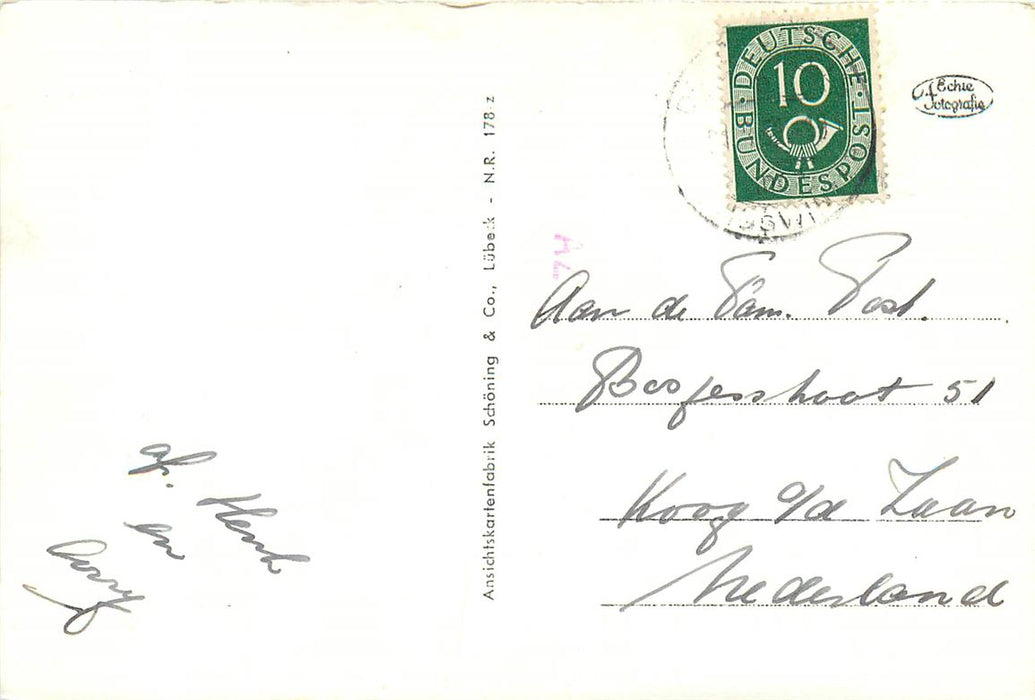 DEUTSCHE BUNDESPOST
10
Echte
Fotografie
Ansichtskartenfabrik Schöning & Co., Lübeck - N.R. 178 z
Aan de Fam. Post.
51
Koog a/d Zaan
Nederland
af. Henk
en
Corry